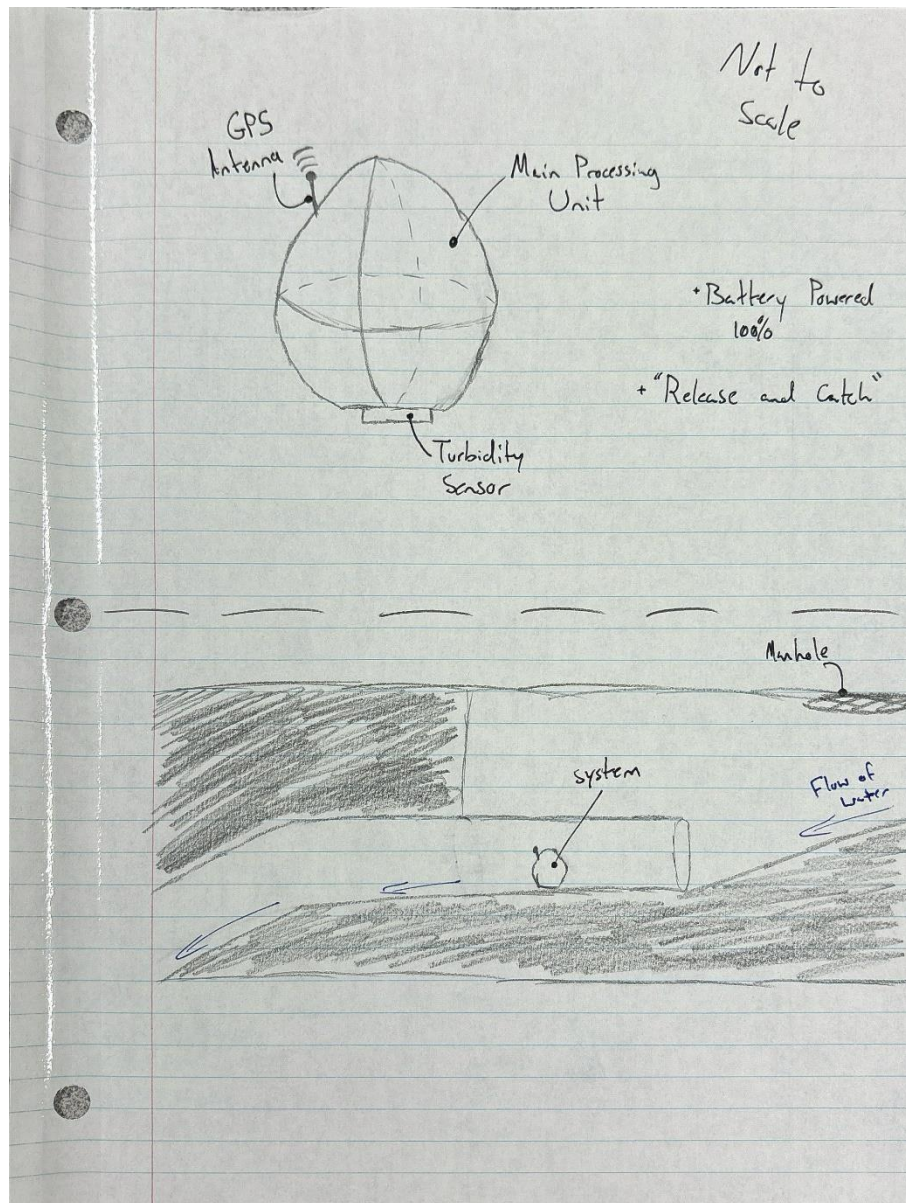 Not to
Scale
GPS
Antenna
Main Processing
Unit
+ Battery Powered
100%
+ "Release and Catch"
Turbidity
Sensor
Manhole
system
Flow of
water